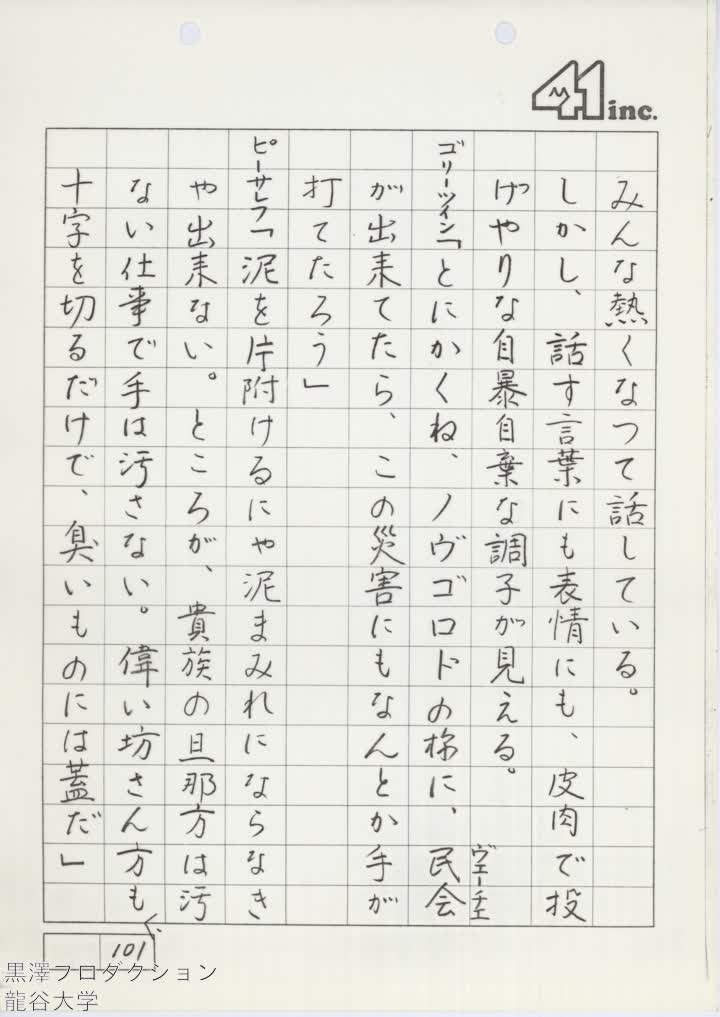 41 inc.
みんな熱くなつて話している。
しかし、話す言葉にも表情にも、皮肉で投
げやりな自暴自棄な調子が見える。
ゴリーツイン「とにかくね、ノヴゴロドの様に、民会
ヴェーチェ
が出来てたら、この災害にもなんとか手が
打てたろう」
ピーサレフ「泥を片附けるにや泥まみれにならなき
や出来ない。ところが、貴族の旦那方は汚
ない仕事で手は汚さない。偉い坊さん方も
十字を切るだけで、臭いものには蓋だ」
101
黒澤プロダクション
龍谷大学